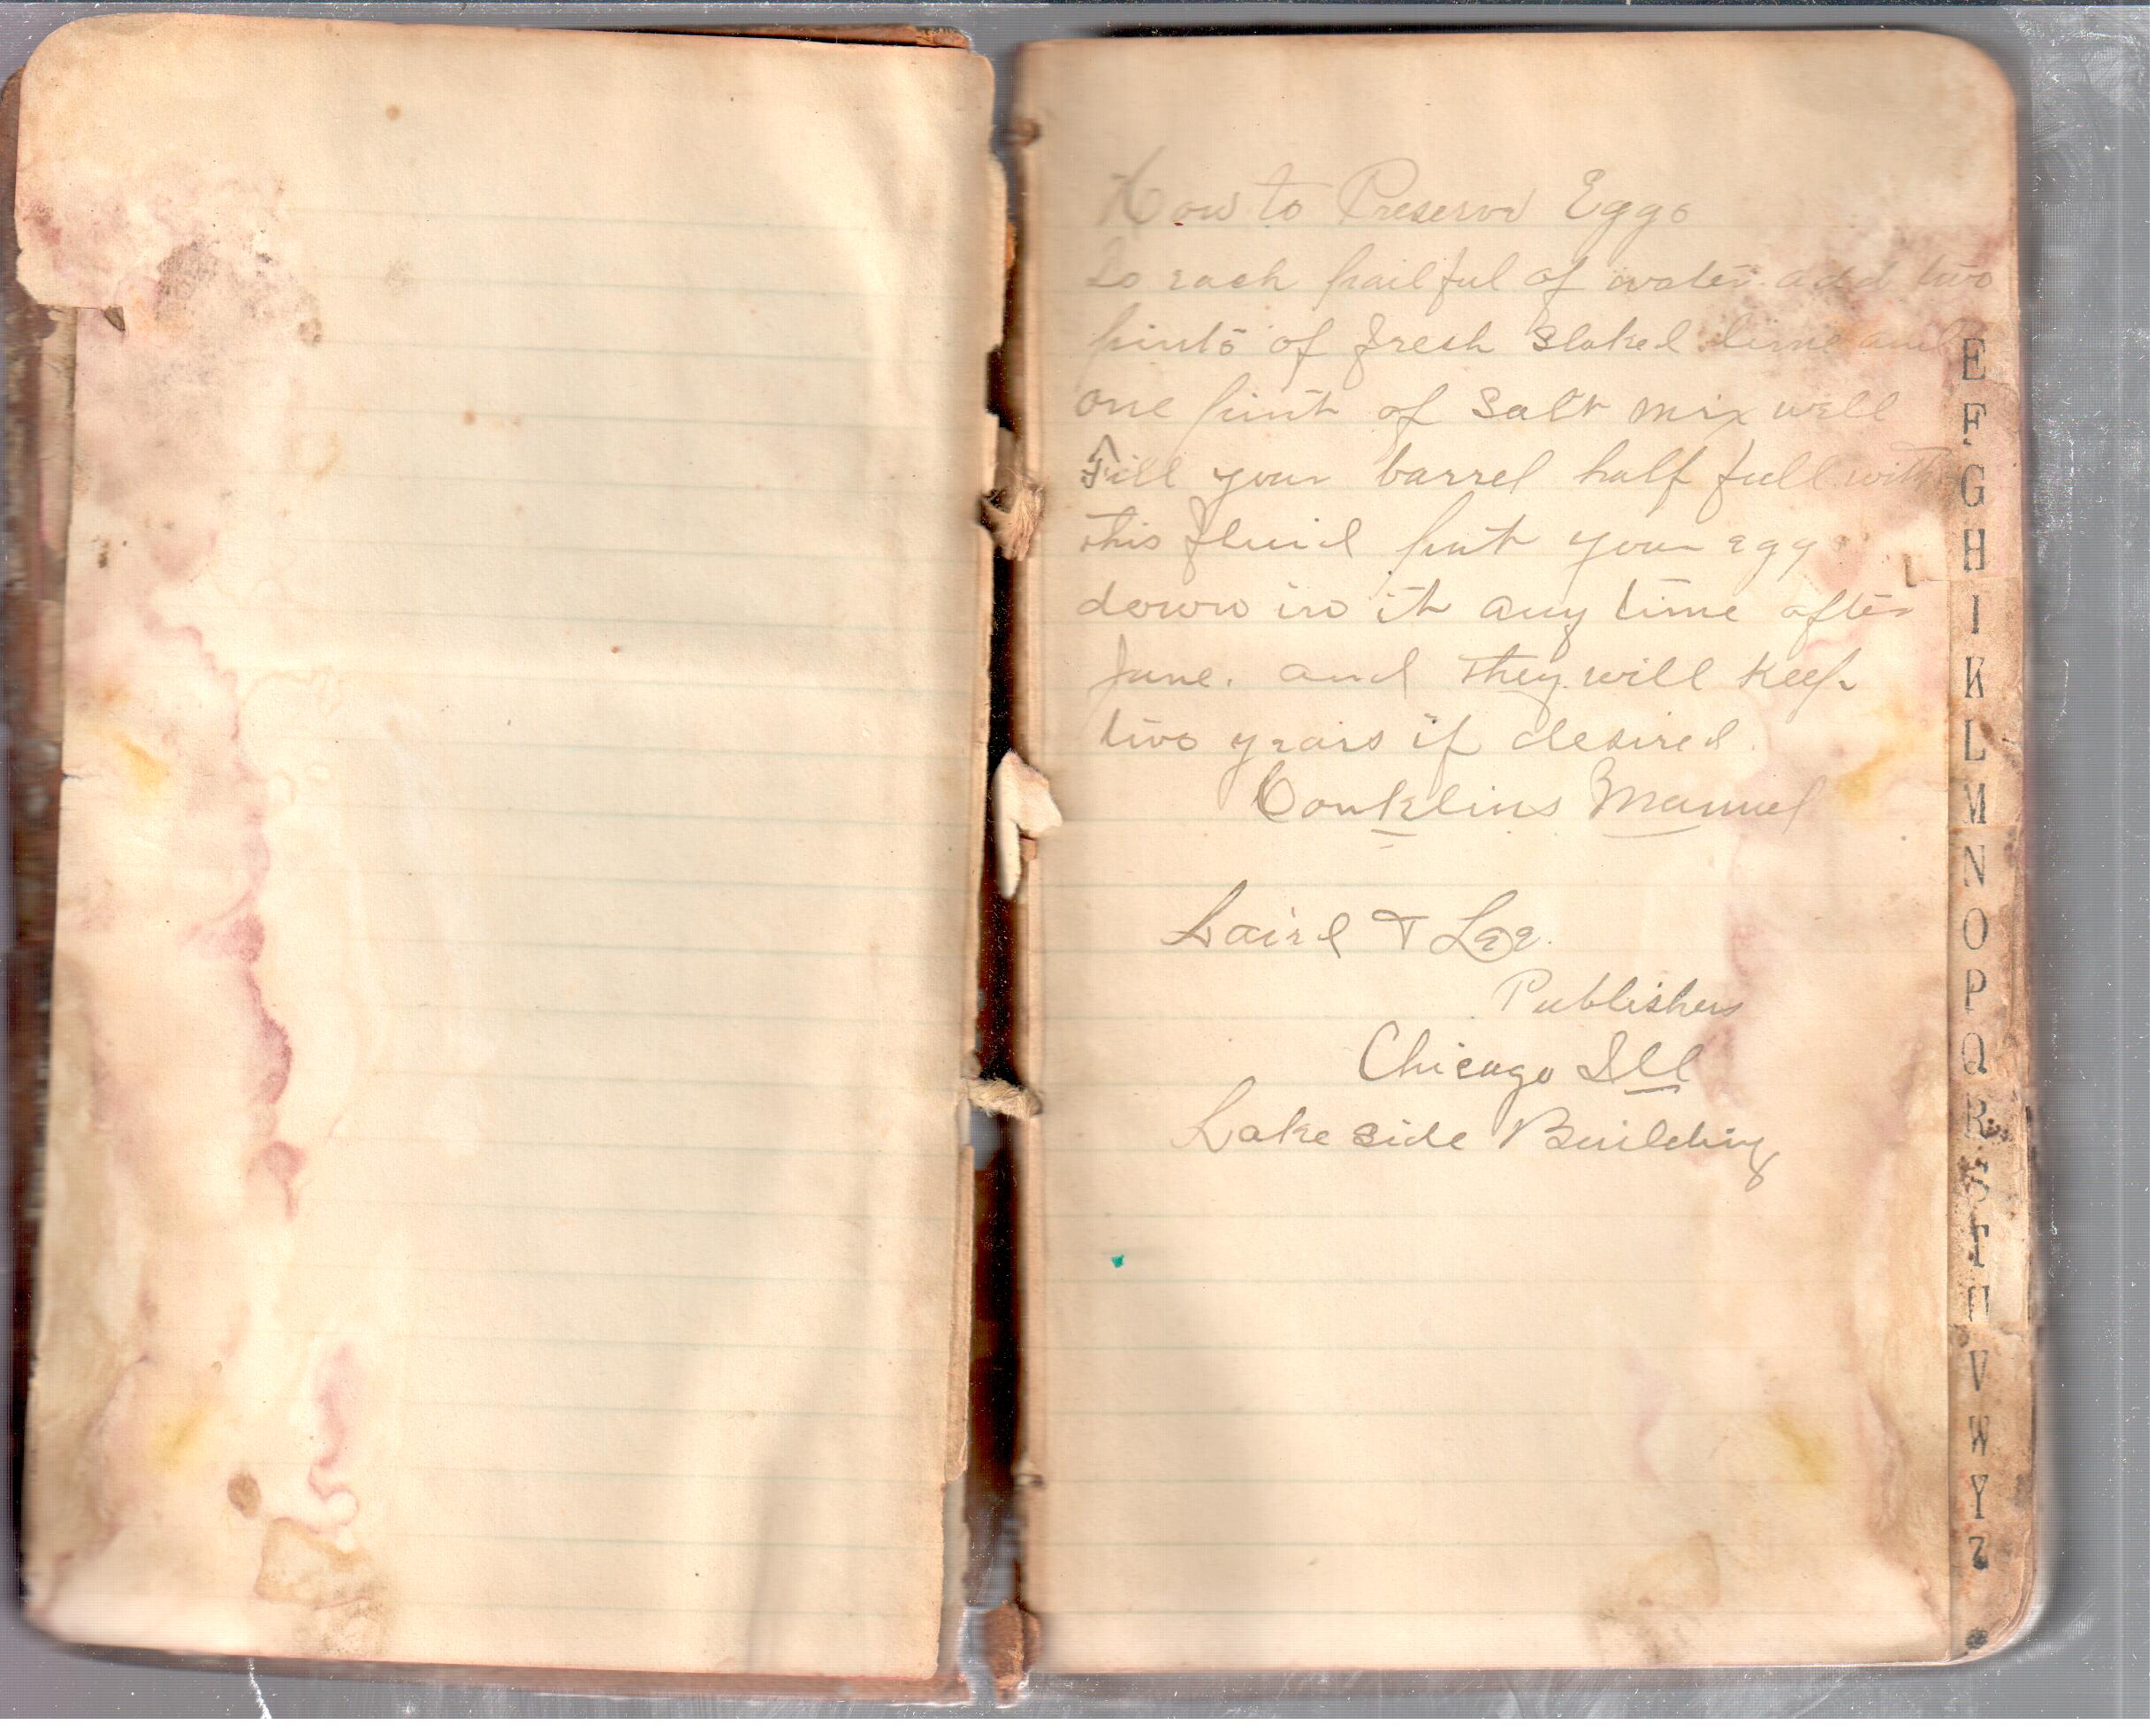 How to Preserve Eggs
To each pailful of water add two
pints of fresh slaked lime and
one pint of salt mix well
Fill your barrel half full with
this fluid put your egg
down in it any time after
June. and they will keep
two years if desired.
Conklins Manuel
Laird & Lee.
Publishers
Chicago Ill
Lakeside Building
E
F
G
H
I
K
L
M
N
O
P
Q
R
S
T
U
V
W
Y
Z